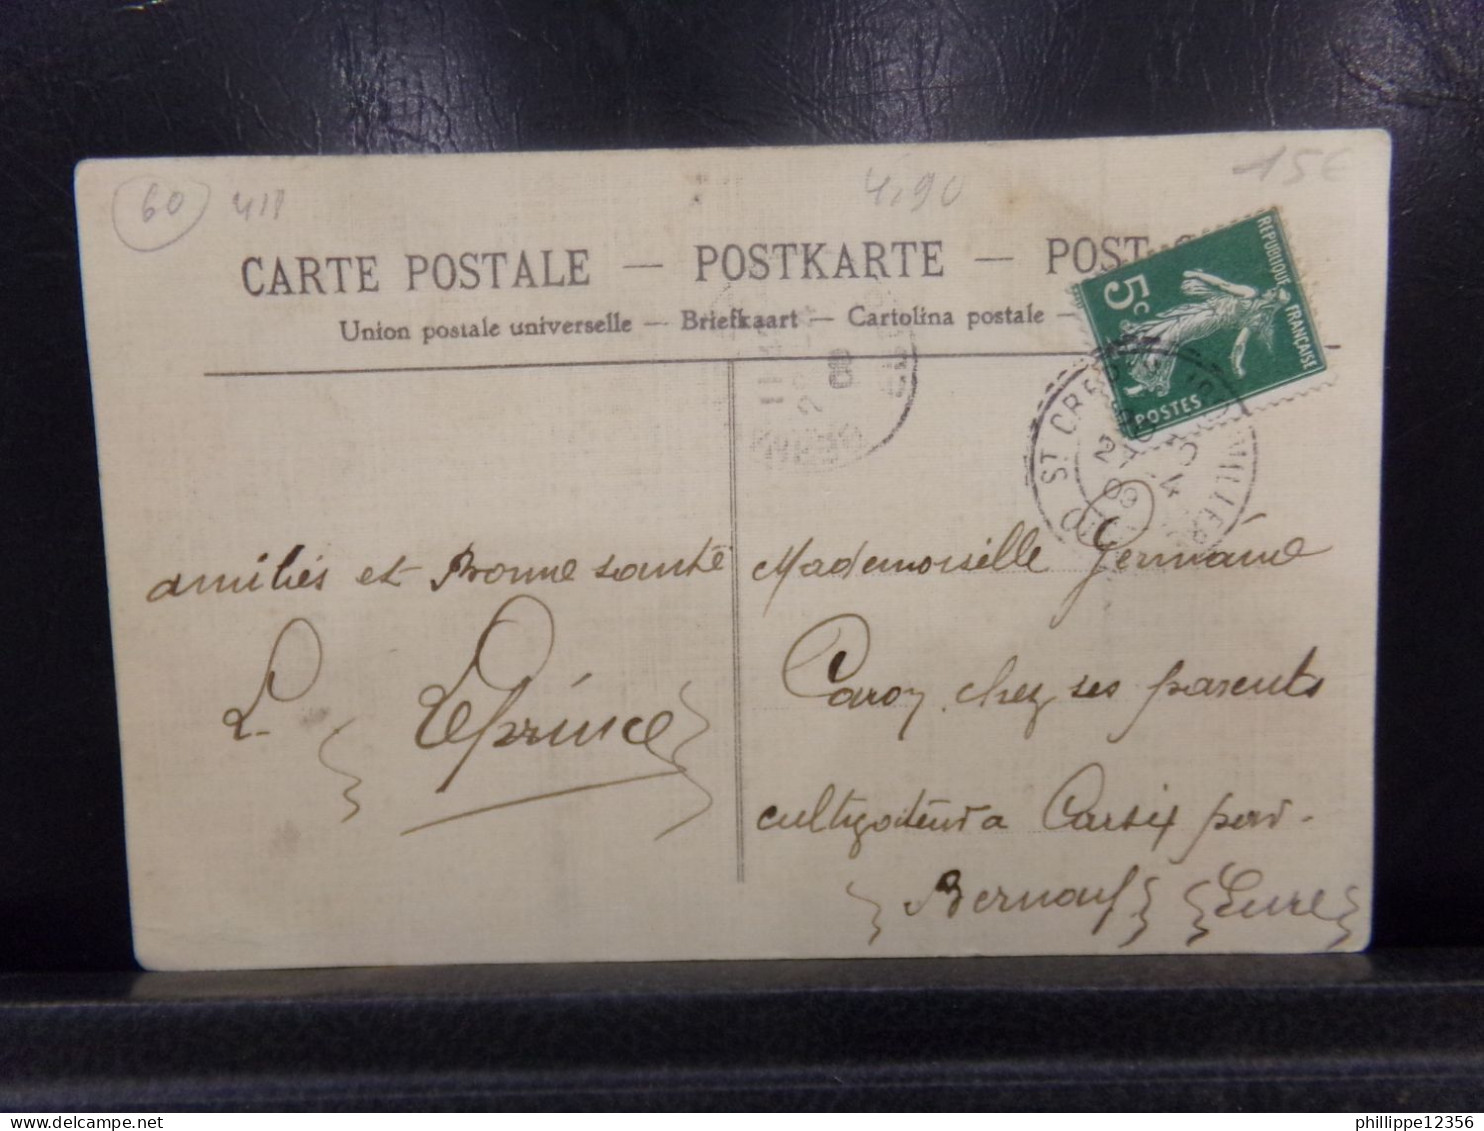 60 418
4,90
15€
CARTE POSTALE — POSTKARTE — POST
Union postale universelle — Briefkaart — Cartolina postale —
REPUBLIQUE FRANÇAISE
5c
POSTES
ST CRE
09
amitiés et Bonne santé
L. Leprince
Mademoiselle Germaine
Caron chez ses parents
cultivateur a Carsix par
Bernay (Eure)
phillippe12356